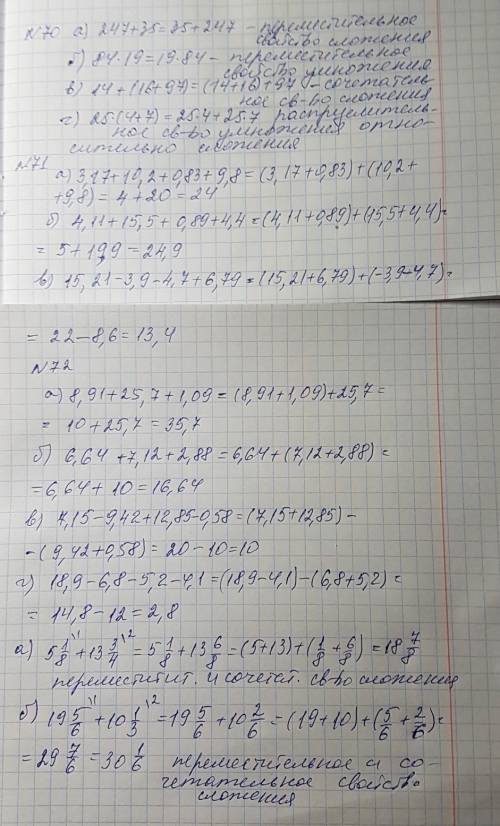 N70 а) 247+35=35+247 – переместительное
свойство сложения
б) 84·19=19·84 – переместительное
свойство умножения
в) 14+(16+97)=(14+16)+97 – сочетатель-
ное св-во сложения
г) 25·(4+7)=25·4+25·7 распределитель-
ное св-во умножения отно-
сительно сложения
N71
а) 3,17+10,2+0,83+9,8=(3,17+0,83)+(10,2+
+9,8)=4+20=24
б) 4,11+15,5+0,89+4,4=(4,11+0,89)+(15,5+4,4)=
=5+19,9=24,9
в) 15,21-3,9-4,7+6,79=(15,21+6,79)+(-3,9+4,7)=
=22-8,6=13,4
N72
а) 8,91+25,7+1,09=(8,91+1,09)+25,7=
=10+25,7=35,7
б) 6,64+7,12+2,88=6,64+(7,12+2,88)=
=6,64+10=16,64
в) 7,15-9,42+12,85-0,58=(7,15+12,85)-
-(9,42+0,58)=20-10=10
г) 18,9-6,8-5,2-4,1=(18,9-4,1)-(6,8+5,2)=
=14,8-12=2,8
а) 5 1/8 \1 + 13 3/4 \2 = 5 1/8 + 13 6/8 = (5+13)+(1/8+6/8) = 18 7/8
переместит. и сочетат. св-во сложения
б) 19 5/6 \1 + 10 1/3 \2 = 19 5/6 + 10 2/6 = (19+10)+(5/6+2/6)=
=29 7/6 = 30 1/6 переместительное и со-
четательное свойство
сложения